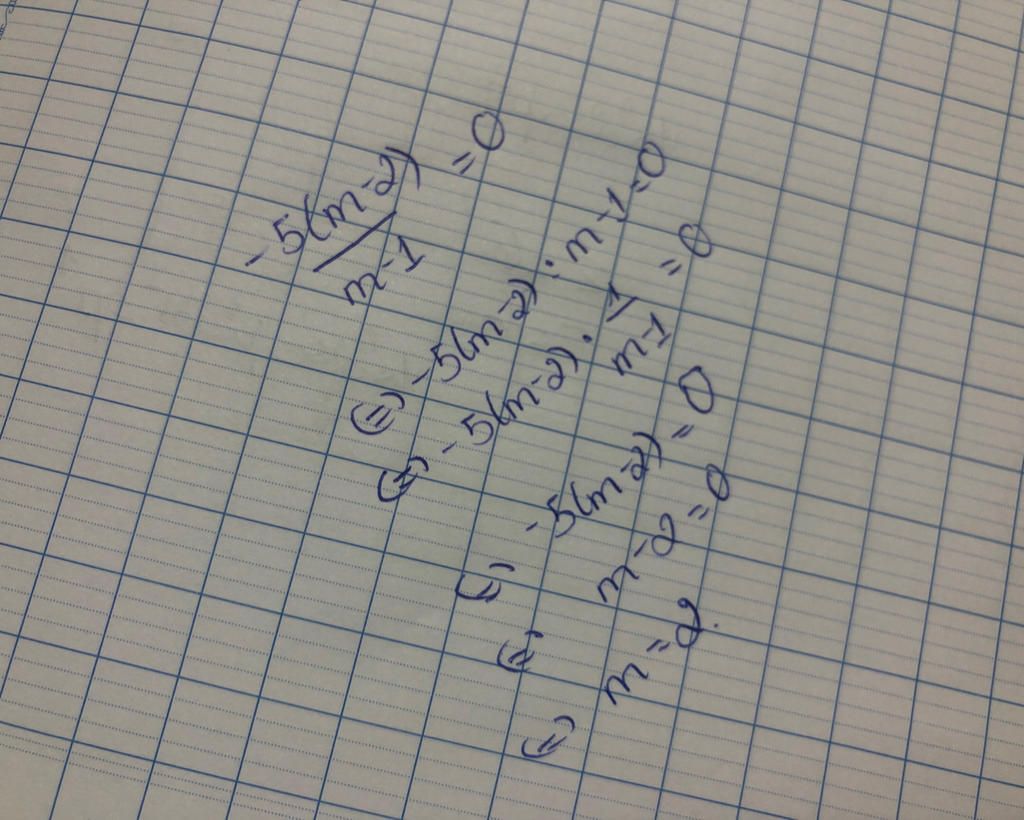 -5(m-2)/m-1 = 0
(=) -5(m-2) : m-1=0
(=) -5(m-2) . 1/m-1 = 0
(=) -5(m-2) = 0
(=) m-2=0
(=) m=2.